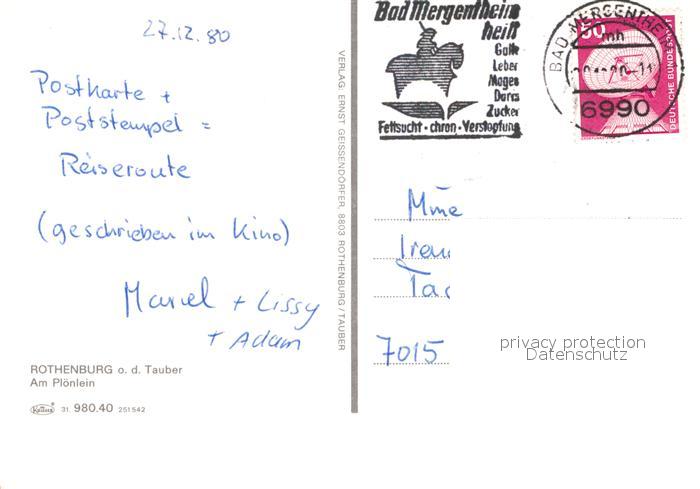 27.12.80
Postkarte +
Poststempel =
Reiseroute
(geschrieben im Kino)
Marcel + Lissy
+ Adam
ROTHENBURG o. d. Tauber
Am Plönlein
31. 980.40 251542
VERLAG: ERNST GEISSENDÖRFER, 8803 ROTHENBURG/TAUBER
Bad Mergentheim
heilt
Galle
Leber
Magen
Darm
Zucker
Fettsucht · chron. Verstopfung
BAD MERGENTHEIM
mh
6990
50
DEUTSCHE BUNDESPOST
Mme
7015
privacy protection
Datenschutz